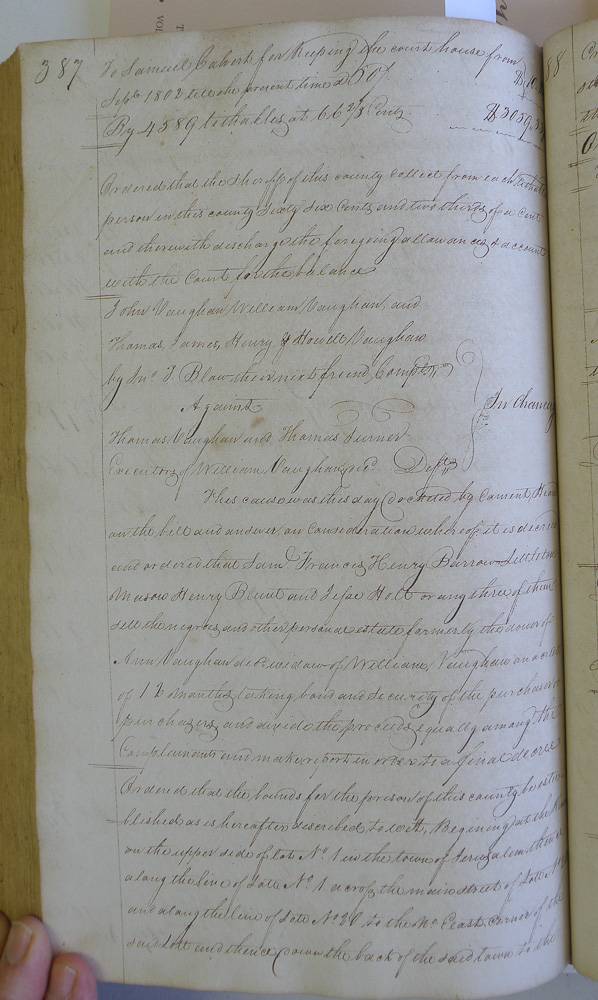 387
To Samuel Calvert for Keeping the court house from
Septr 1802 till the present time a 50/
By 4589 tithables, at 66 2/3 Cents $3059.
Ordered that the Sheriff of this county Collect from each tithable
person in this county Sixty Six Cents and two thirds of a Cent
and therewith discharge the foregoing allowances & account
with the Court for the balance
John Vaughan, William Vaughan, and
Thomas, James, Henry & Howell Vaughan
by Jno. T. Blow their next friend, Complts.
Against In Chancy
Thomas Vaughan and Thomas Turner
Executors of William Vaughan, decd. Defts
This cause was this day docketed by Consent, Heard
on the bill and answer, on Consideration whereof, it is decreed
and ordered that Saml. Francis, Henry Barrow Littleton
Mason Henry Blunt and Jesse Holt or any three of them
Sell the negroes and other personal estate formerly the dower of
Ann Vaughan decd. widow of William Vaughan on a credit
of 12 months, taking bond and Security of the purchaser or
purchasers, and divide the proceeds equally among the
Complainants and make report in order to a final decree
Ordered that the bounds for the prison of this county be esta
blished as is hereafter described to wit, Begining at the
on the upper side of lot No. 1 in the town of Jerusalem thence
along the line of Lott No. 1 across the main street of Lott No.
and along the line of Lott No 20 to the No. East corner of the
said Lott and thence down the back of the said town to the